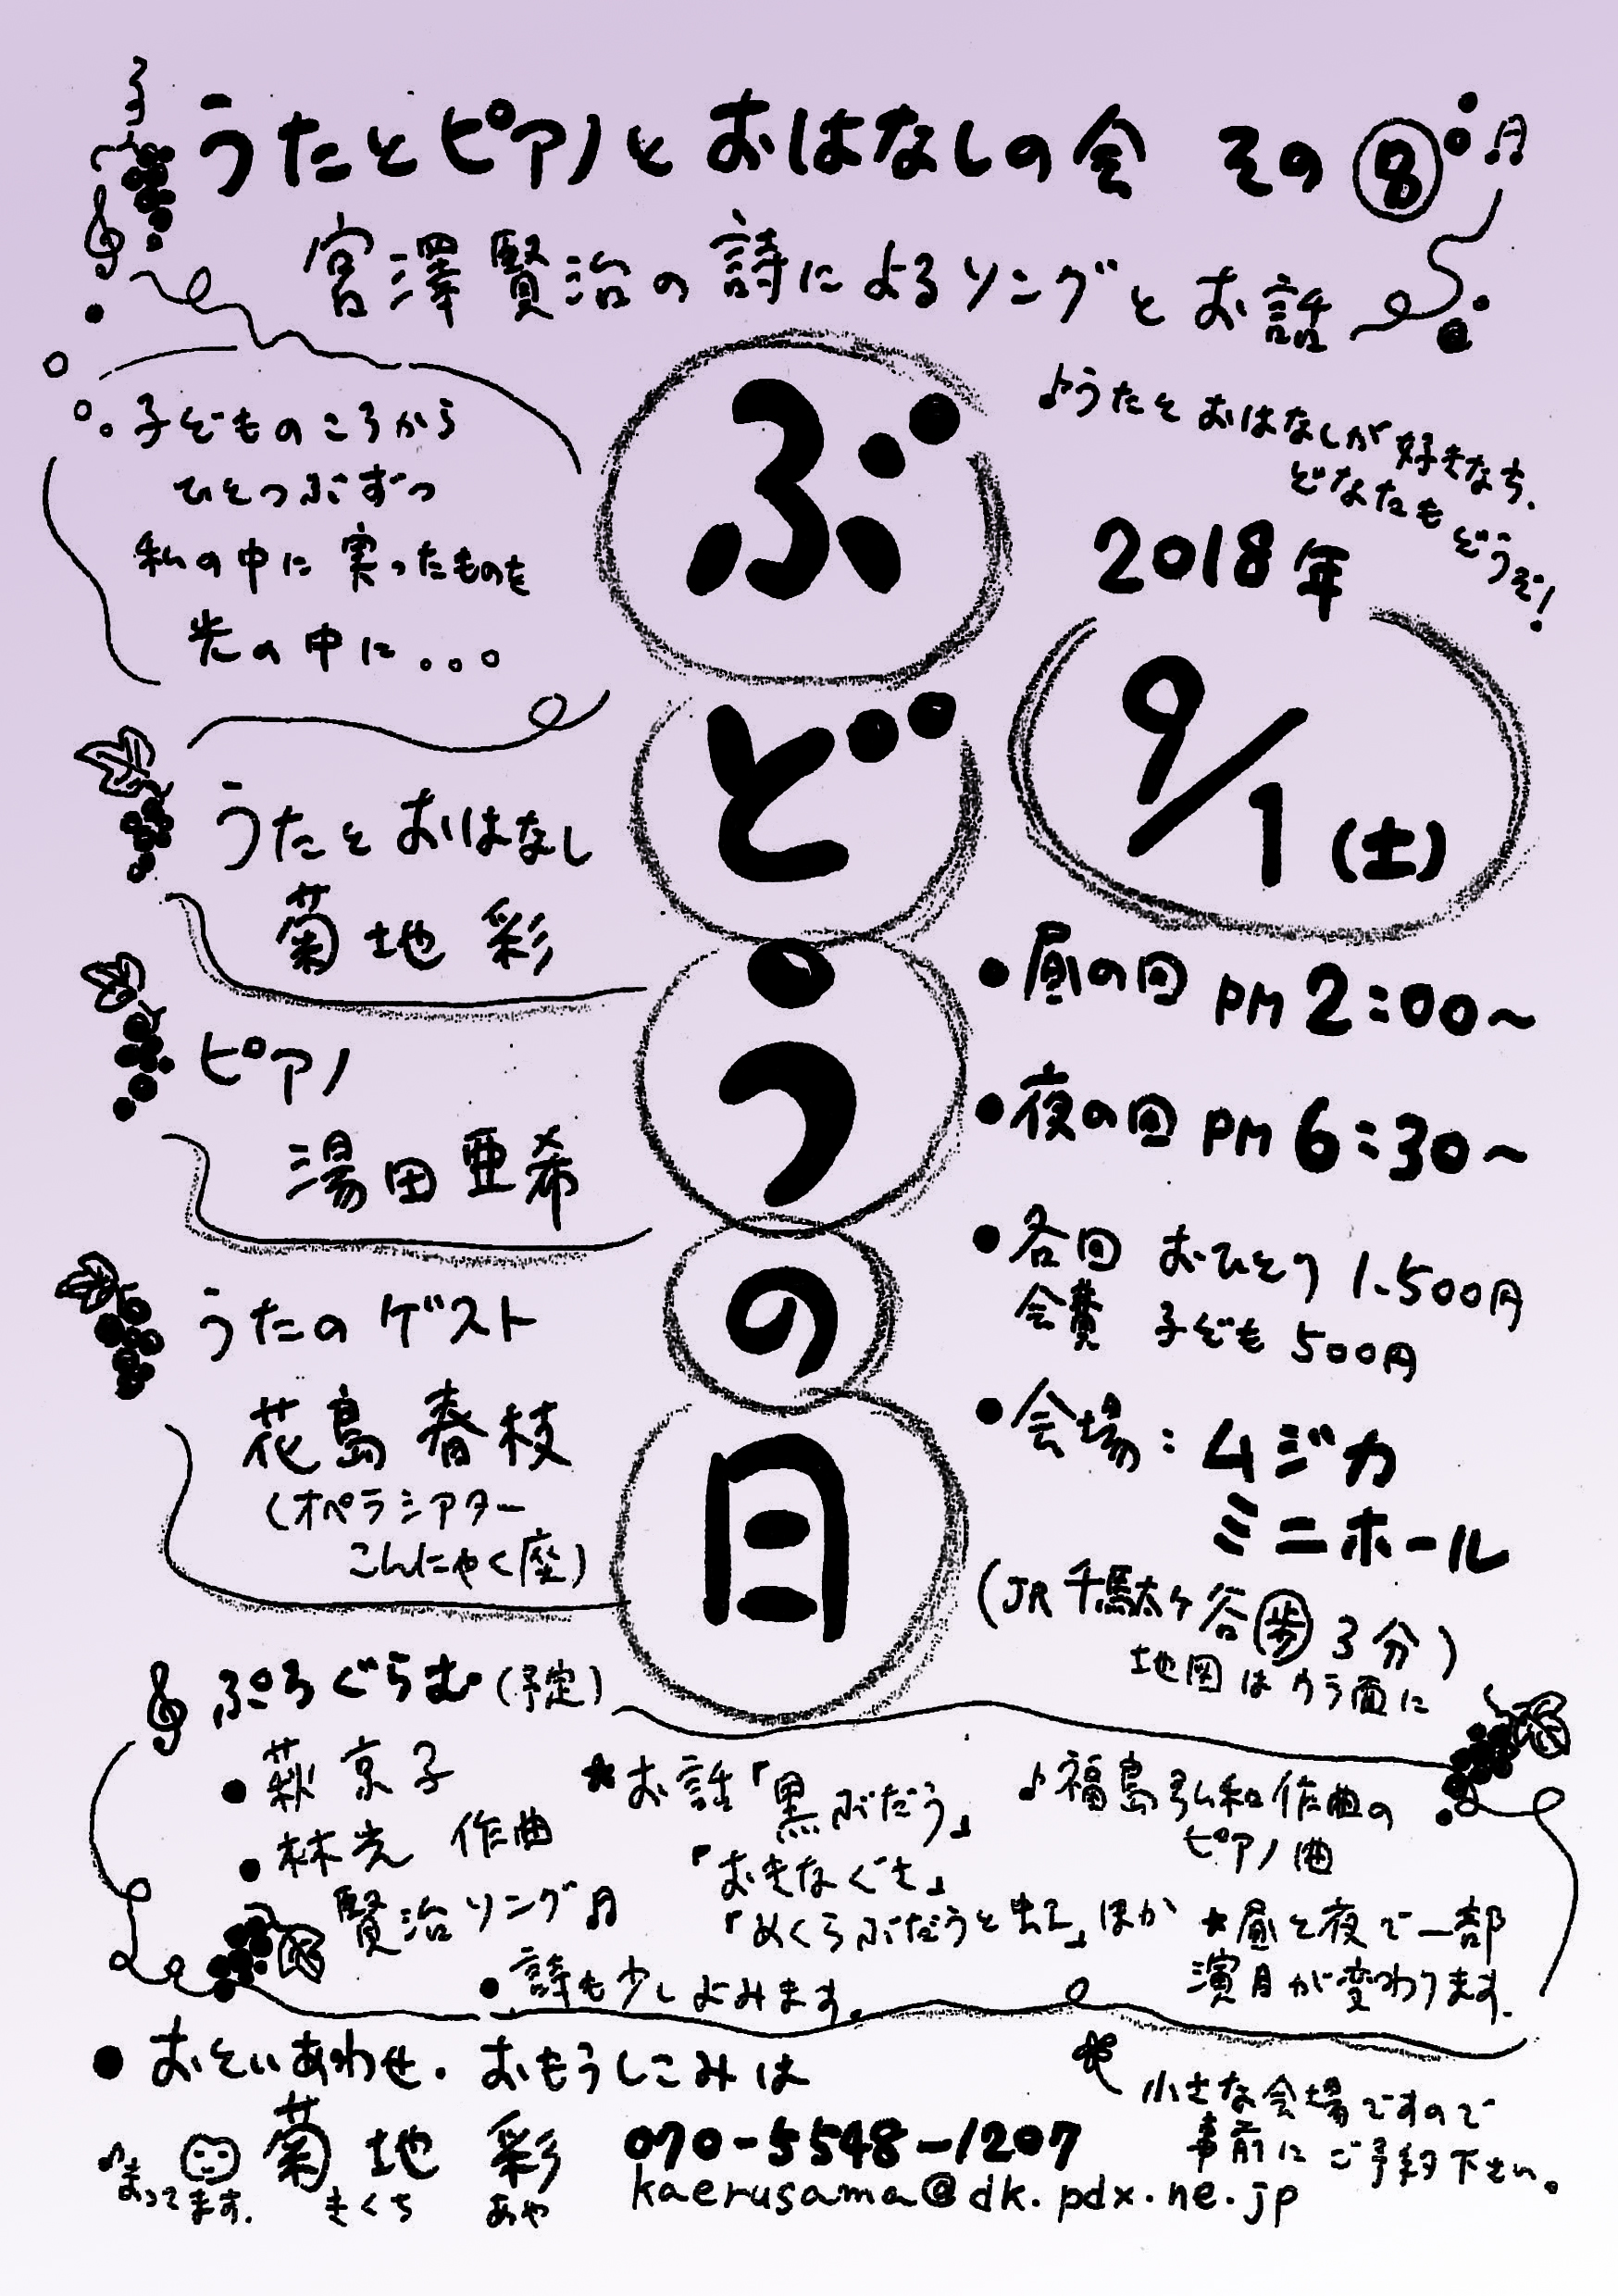 うたとピアノとおはなしの会 その⑧
宮澤賢治の詩によるソングとお話
♪うたとおはなしが好きなら、
どなたもどうぞ!
子どものころから
ひとつぶずつ
私の中に実ったものを
光の中に...
ぶどうの日
2018年
9/1(土)
うたとおはなし
菊地 彩
ピアノ
湯田亜希
うたのゲスト
花島春枝
(オペラシアター
こんにゃく座)
●昼の回 PM 2:00~
●夜の回 PM 6:30~
●各回 おひとり 1.500円
会費 子ども 500円
●会場:ムジカ
ミニホール
(JR千駄ヶ谷歩3分)
地図はウラ面に
ぷろぐらむ(予定)
●萩京子
●林光 作曲
賢治ソング♫
●詩も少しよみます。
★お話「黒ぶだう」
「おきなぐさ」
「めくらぶだうと虹」ほか
♪福島弘和作曲の
ピアノ曲
★昼と夜で一部
演目が変わります。
●おといあわせ.おもうしこみは
♪まってます.
菊地 彩
きくち あや
070-5548-1207
kaerusama@dk.pdx.ne.jp
小さな会場ですので
事前にご予約下さい。